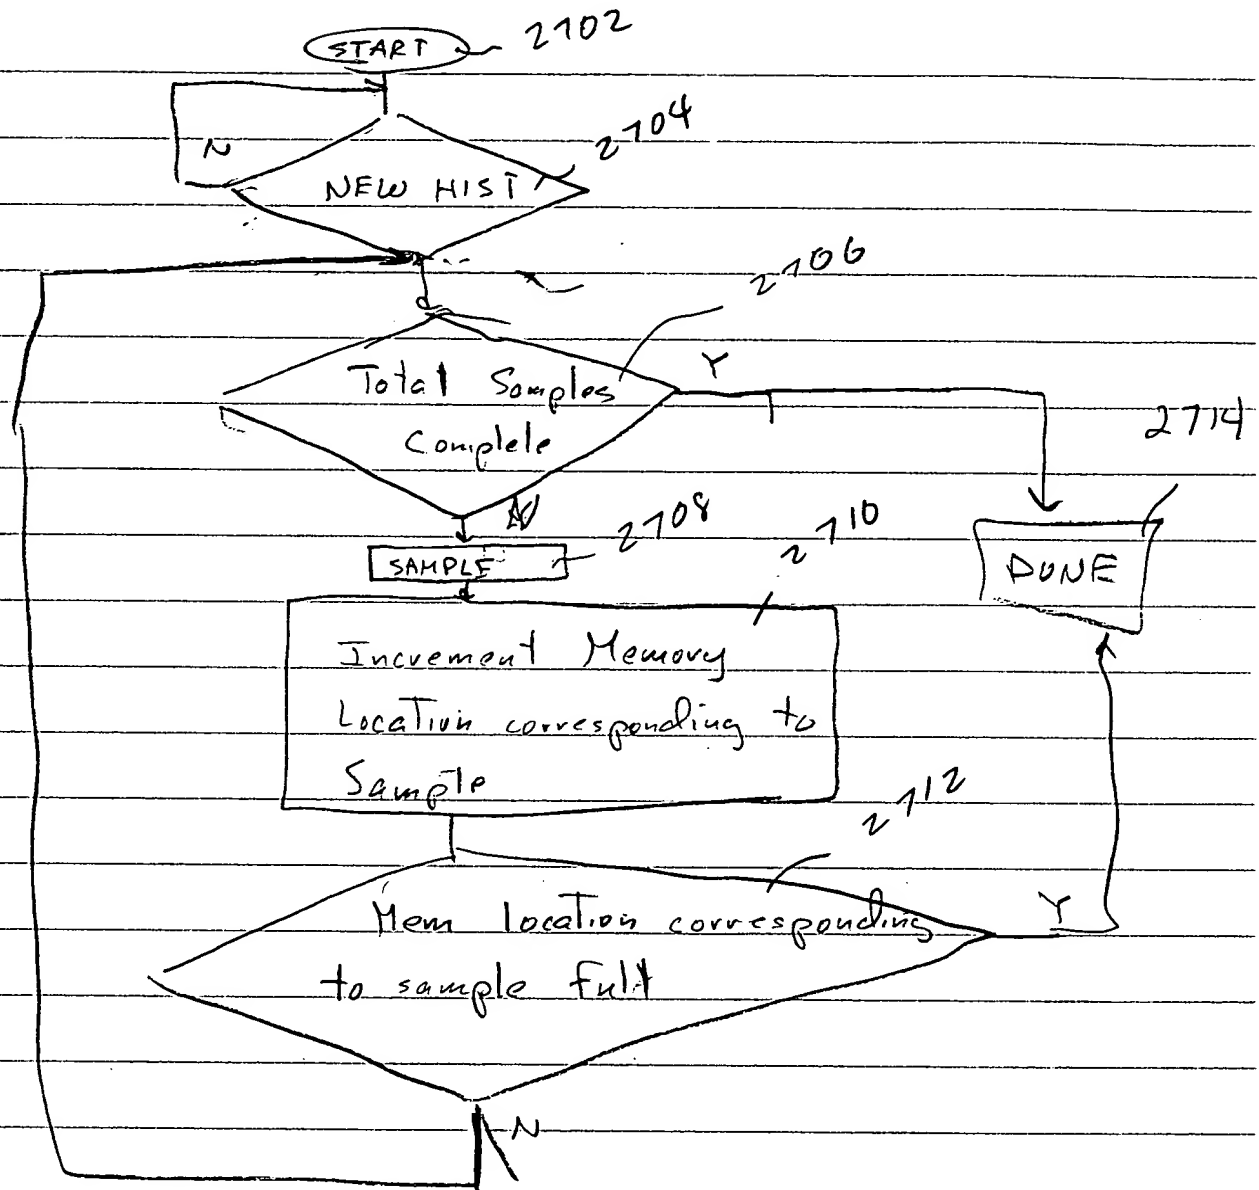 START 2702
N
2704
NEW HIST
2706
Total Samples
Y
Complete
2714
N
SAMPLE 2708
2710
DONE
Increment Memory
Location corresponding to
Sample
2712
Mem location corresponding
Y
to sample Full
N